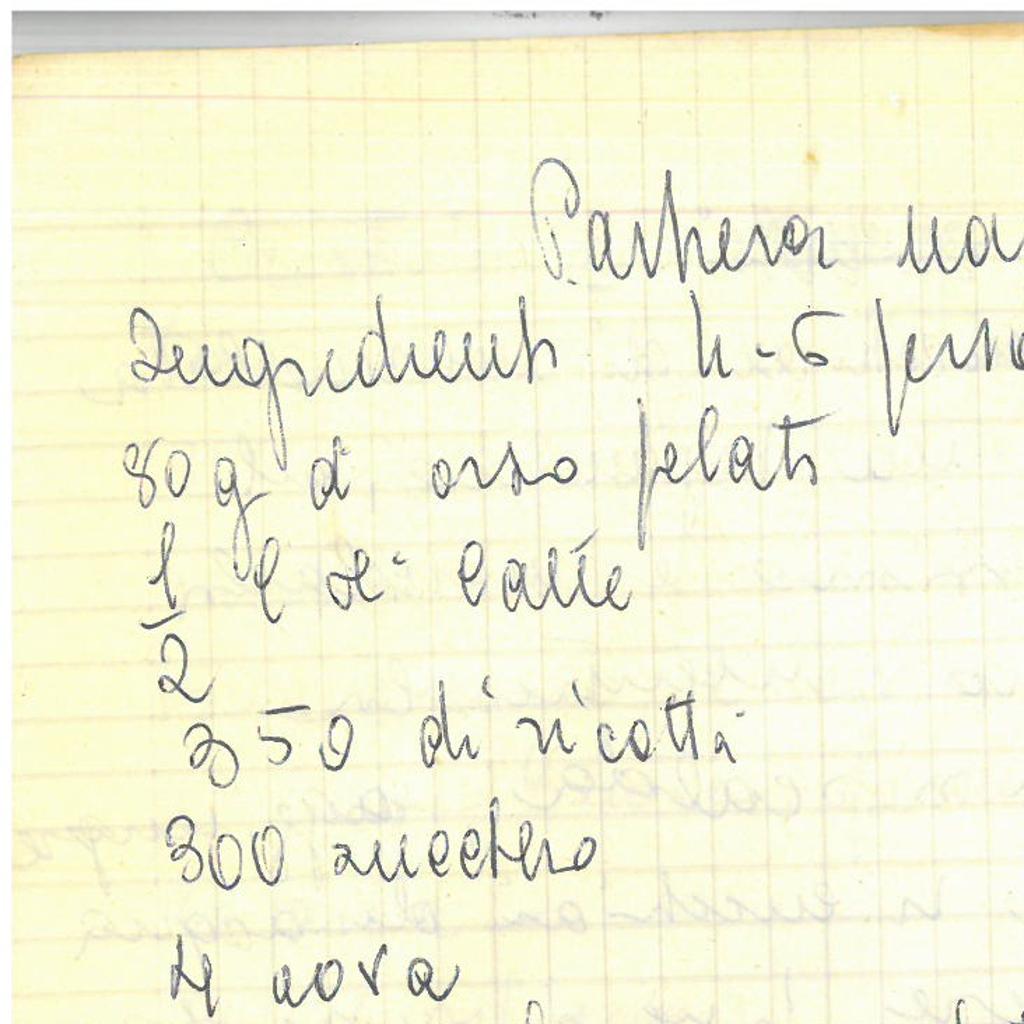 Pastiera na
Ingredienti 4-6 perso
80 g di orzo pelato
1/2 l di latte
350 di ricotta
300 zucchero
4 uova